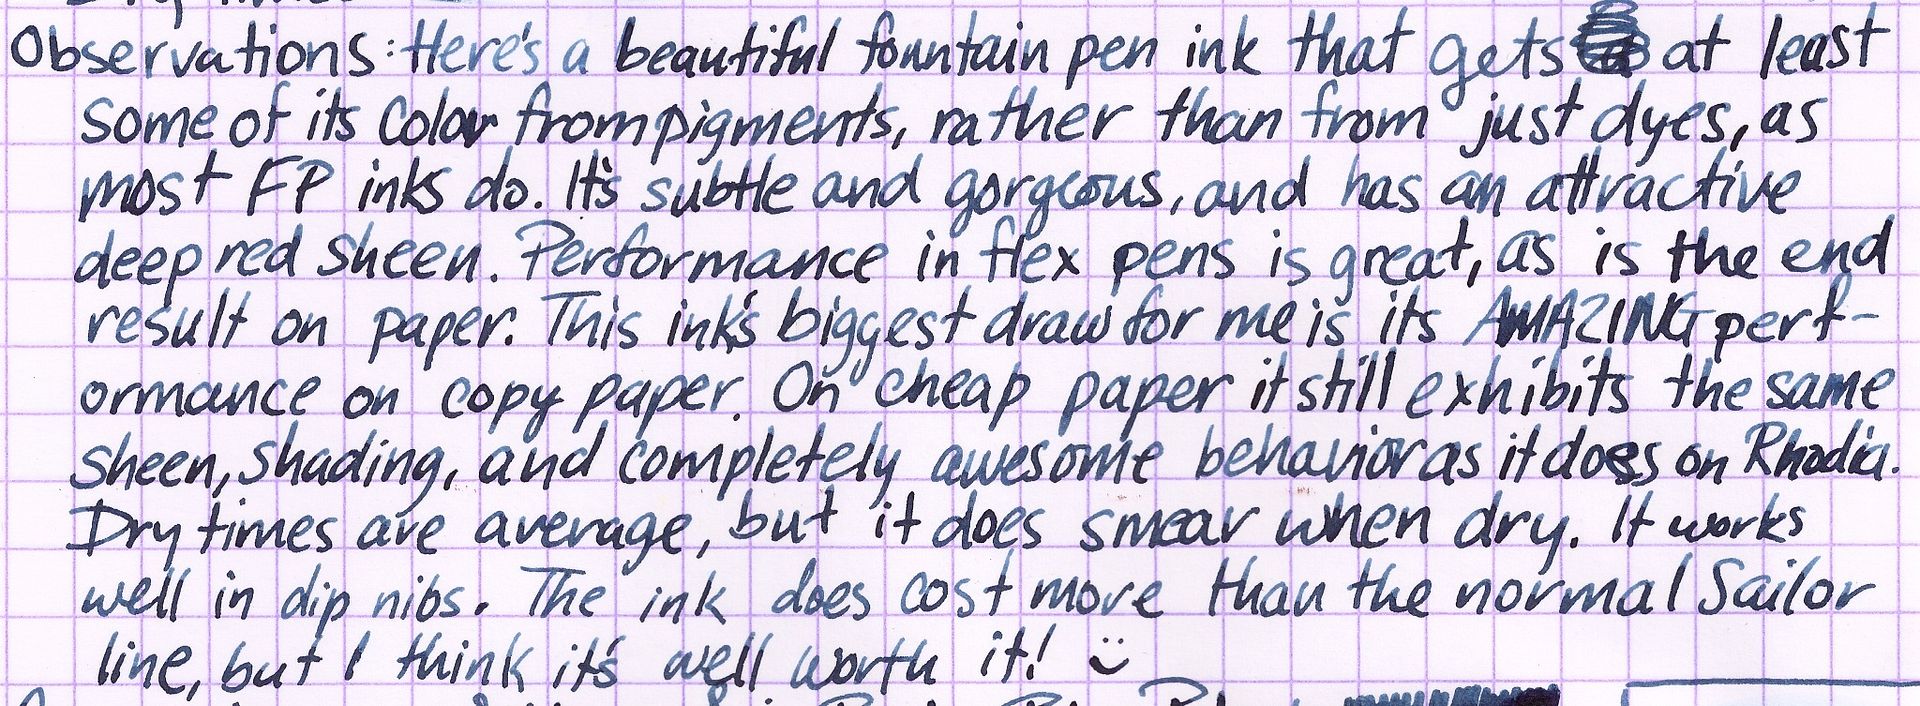 Observations: Here's a beautiful fountain pen ink that gets at least
some of its color from pigments, rather than from just dyes, as
most FP inks do. It's subtle and gorgeous, and has an attractive
deep red sheen. Performance in flex pens is great, as is the end
result on paper. This ink's biggest draw for me is its AMAZING perf-
ormance on copy paper. On cheap paper it still exhibits the same
sheen, shading, and completely awesome behavior as it does on Rhodia.
Dry times are average, but it does smear when dry. It works
well in dip nibs. The ink does cost more than the normal Sailor
line, but I think it's well worth it! :)